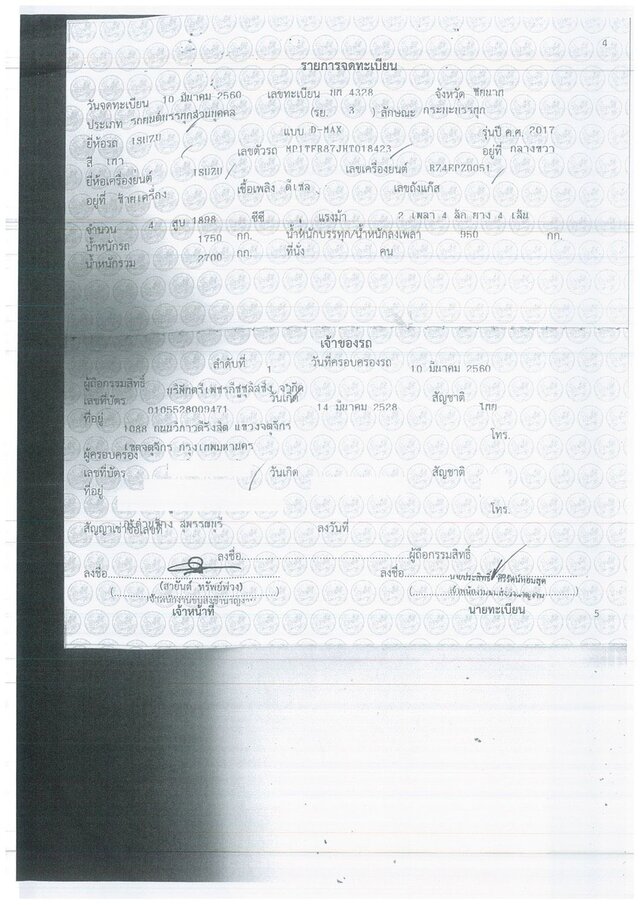 4
รายการจดทะเบียน
วันจดทะเบียน 10 มีนาคม 2560 เลขทะเบียน 4328 จังหวัด ชัยนาท
ประเภท รถยนต์บรรทุกส่วนบุคคล (รย. 3 ) ลักษณะ กระบะบรรทุก
ยี่ห้อรถ ISUZU แบบ D-MAX รุ่นปี ค.ศ. 2017
สี เทา เลขตัวรถ MP1TFR87JHT018423 อยู่ที่ กลางขวา
ยี่ห้อเครื่องยนต์ ISUZU เลขเครื่องยนต์ RZ4EPZ0051
อยู่ที่ ซ้ายเครื่อง เชื้อเพลิง ดีเซล เลขถังแก๊ส
จำนวน 4 สูบ 1898 ซีซี แรงม้า 2 เพลา 4 ล้อ ยาง 4 เส้น
น้ำหนักรถ 1750 กก. น้ำหนักบรรทุก/น้ำหนักลงเพลา 950 กก.
น้ำหนักรวม 2700 กก. ที่นั่ง คน
เจ้าของรถ
ลำดับที่ 1 วันที่ครอบครองรถ 10 มีนาคม 2560
ผู้ถือกรรมสิทธิ์ จำกัด
เลขที่บัตร 0105528009471 วันเกิด 14 มีนาคม 2528 สัญชาติ ไทย
ที่อยู่ 1088 ถนนวิภาวดีรังสิต แขวงจตุจักร
เขตจตุจักร กรุงเทพมหานคร โทร.
ผู้ครอบครอง
เลขที่บัตร วันเกิด สัญชาติ
ที่อยู่
โทร.
สัญญาเช่าซื้อเลขที่ สุพรรณบุรี ลงวันที่
ลงชื่อ ผู้ถือกรรมสิทธิ์
ลงชื่อ ลงชื่อ
(สายันต์ ทรัพย์พ่วง) นายประสิทธิ์
เจ้าหน้าที่ นายทะเบียน
5